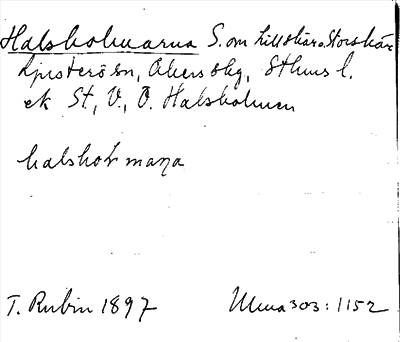 Halsholmarna S. om Lillskär o. Storskär
Ljusterö sn, Åkers skg, Sthms l.
ek St, V, Ö. Halsholmen
halshoɫmaṇa
T. Rubin 1897 303:1152